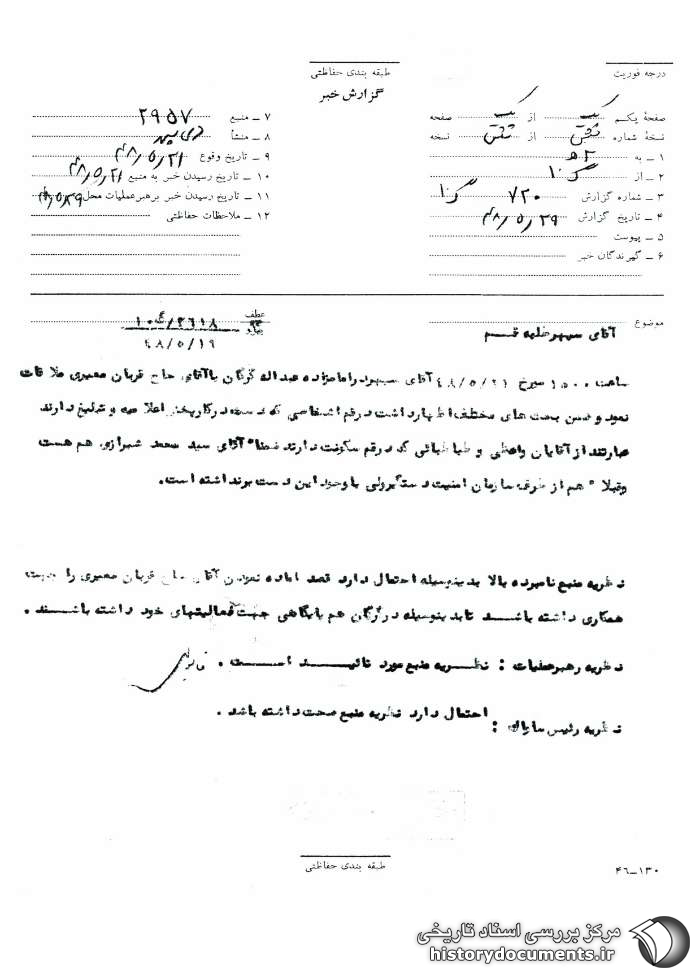 درجه فوریت
طبقه بندی حفاظتی
گزارش خبر
صفحهٔ یکم یک از یک صفحه
نسخهٔ شماره از نسخه
۱ ـ به ۳۵۲
۲ ـ از ک ۱۰
۳ ـ شماره گزارش ۷۲۰ ک ۱۰
۴ ـ تاریخ گزارش ۴۸/۵/۲۹
۵ ـ پیوست
۶ ـ گیرندگان خبر
۷ ـ منبع ۲۹۵۷
۸ ـ منشأ
۹ ـ تاریخ وقوع ۴۸/۵/۲۱
۱۰ ـ تاریخ رسیدن خبر به منبع ۴۸/۵/۲۱
۱۱ ـ تاریخ رسیدن خبر برهبر عملیات محل
۱۲ ـ ملاحظات حفاظتی
موضوع آقای سپهر طلبه قم
عطف
۴۸/۵/۱۹
ساعت ۱۵۰۰ مورخ ۴۸/۵/۲۱ آقای سپهر در امامزاده عبداله گرگان با آقای حاج قربان معمیری ملاقات
نمود و ضمن بحث های مختلف اظهار داشت در قم اشخاصی که دست در کار پخش اعلامیه و تبلیغ دارند
عبارتند از آقایان واعظی و طباطبائی که در قم سکونت دارند ضمنا" آقای سید محمد شیرازی هم هست
وقبلا" هم از طرف سازمان امنیت دستگیر ولی با وجود این دست برنداشته است.
نظریه منبع نامبرده بالا بدینوسیله احتمال دارد قصد آماده نمودن آقای حاج قربان معمیری را جهت
همکاری داشته باشد تا بدینوسیله در گرگان هم پایگاهی جهت فعالیتهای خود داشته باشند.
نظریه رهبر عملیات : نظریه منبع مورد تائید است.
نظریه رئیس ساواک : احتمال دارد نظریه منبع صحت داشته باشد.
طبقه بندی حفاظتی
۴۶-۱۳۰
مرکز بررسی اسناد تاریخی
historydocuments.ir